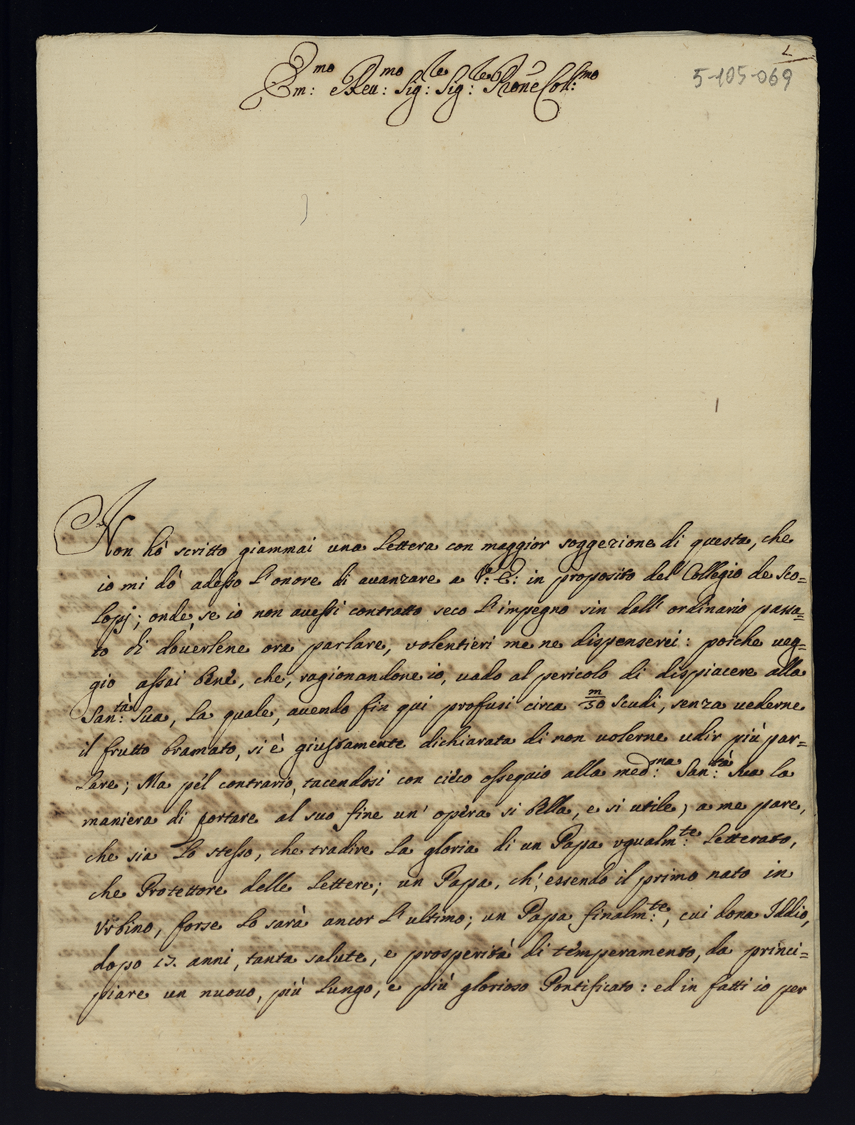 2
5-105-069
Em:mo e Reu:mo Sig:re Sig:re Prone Coll:mo
Non hò scritto giammai una Lettera con maggior soggezione di questa, che
io mi dò adesso L'onore di auanzare a V: E: in proposito del Collegio de Sco-
Lopj; onde, se io non avessi contratto seco L'impegno sin dall' ordinario passa-
to di dovertene ora parlare, volentieri me ne dispenserei: poiche veg-
gio assai bene, che, ragionandone io, vado al pericolo di dispiacere alla
San:tà Sua, La quale, auendo fin qui profusi circa m/50 scudi, senza vederne
il frutto bramato, si è giustamente dichiarata di non volerne udir più par-
Lare; Ma pel contrario, tacendosi con cieco ossequio alla med:ma San:tà Sua la
maniera di portare al suo fine un' opera si bella, e si utile, a me pare,
che sia Lo stesso, che tradire La gloria di un Papa vgualm:te Letterato,
che Protettore delle Lettere; un Papa, ch', essendo il primo nato in
Vrbino, forse Lo sarà ancor L'ultimo; un Papa finalm:te, cui dona Iddio,
dopo 17. anni, tanta salute, e prosperità di temperamento, da princi-
piare un nuouo, più Lungo, e più glorioso Pontificato: ed in fatti io per